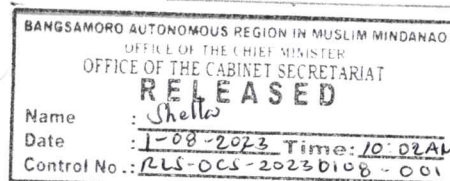 BANGSAMORO AUTONOMOUS REGION IN MUSLIM MINDANAO
OFFICE OF THE CHIEF MINISTER
OFFICE OF THE CABINET SECRETARIAT
RELEASED
Name :
Date : 1-08-2023 Time: 10:02AM
Control No.: RLS-OCS-20230108-001